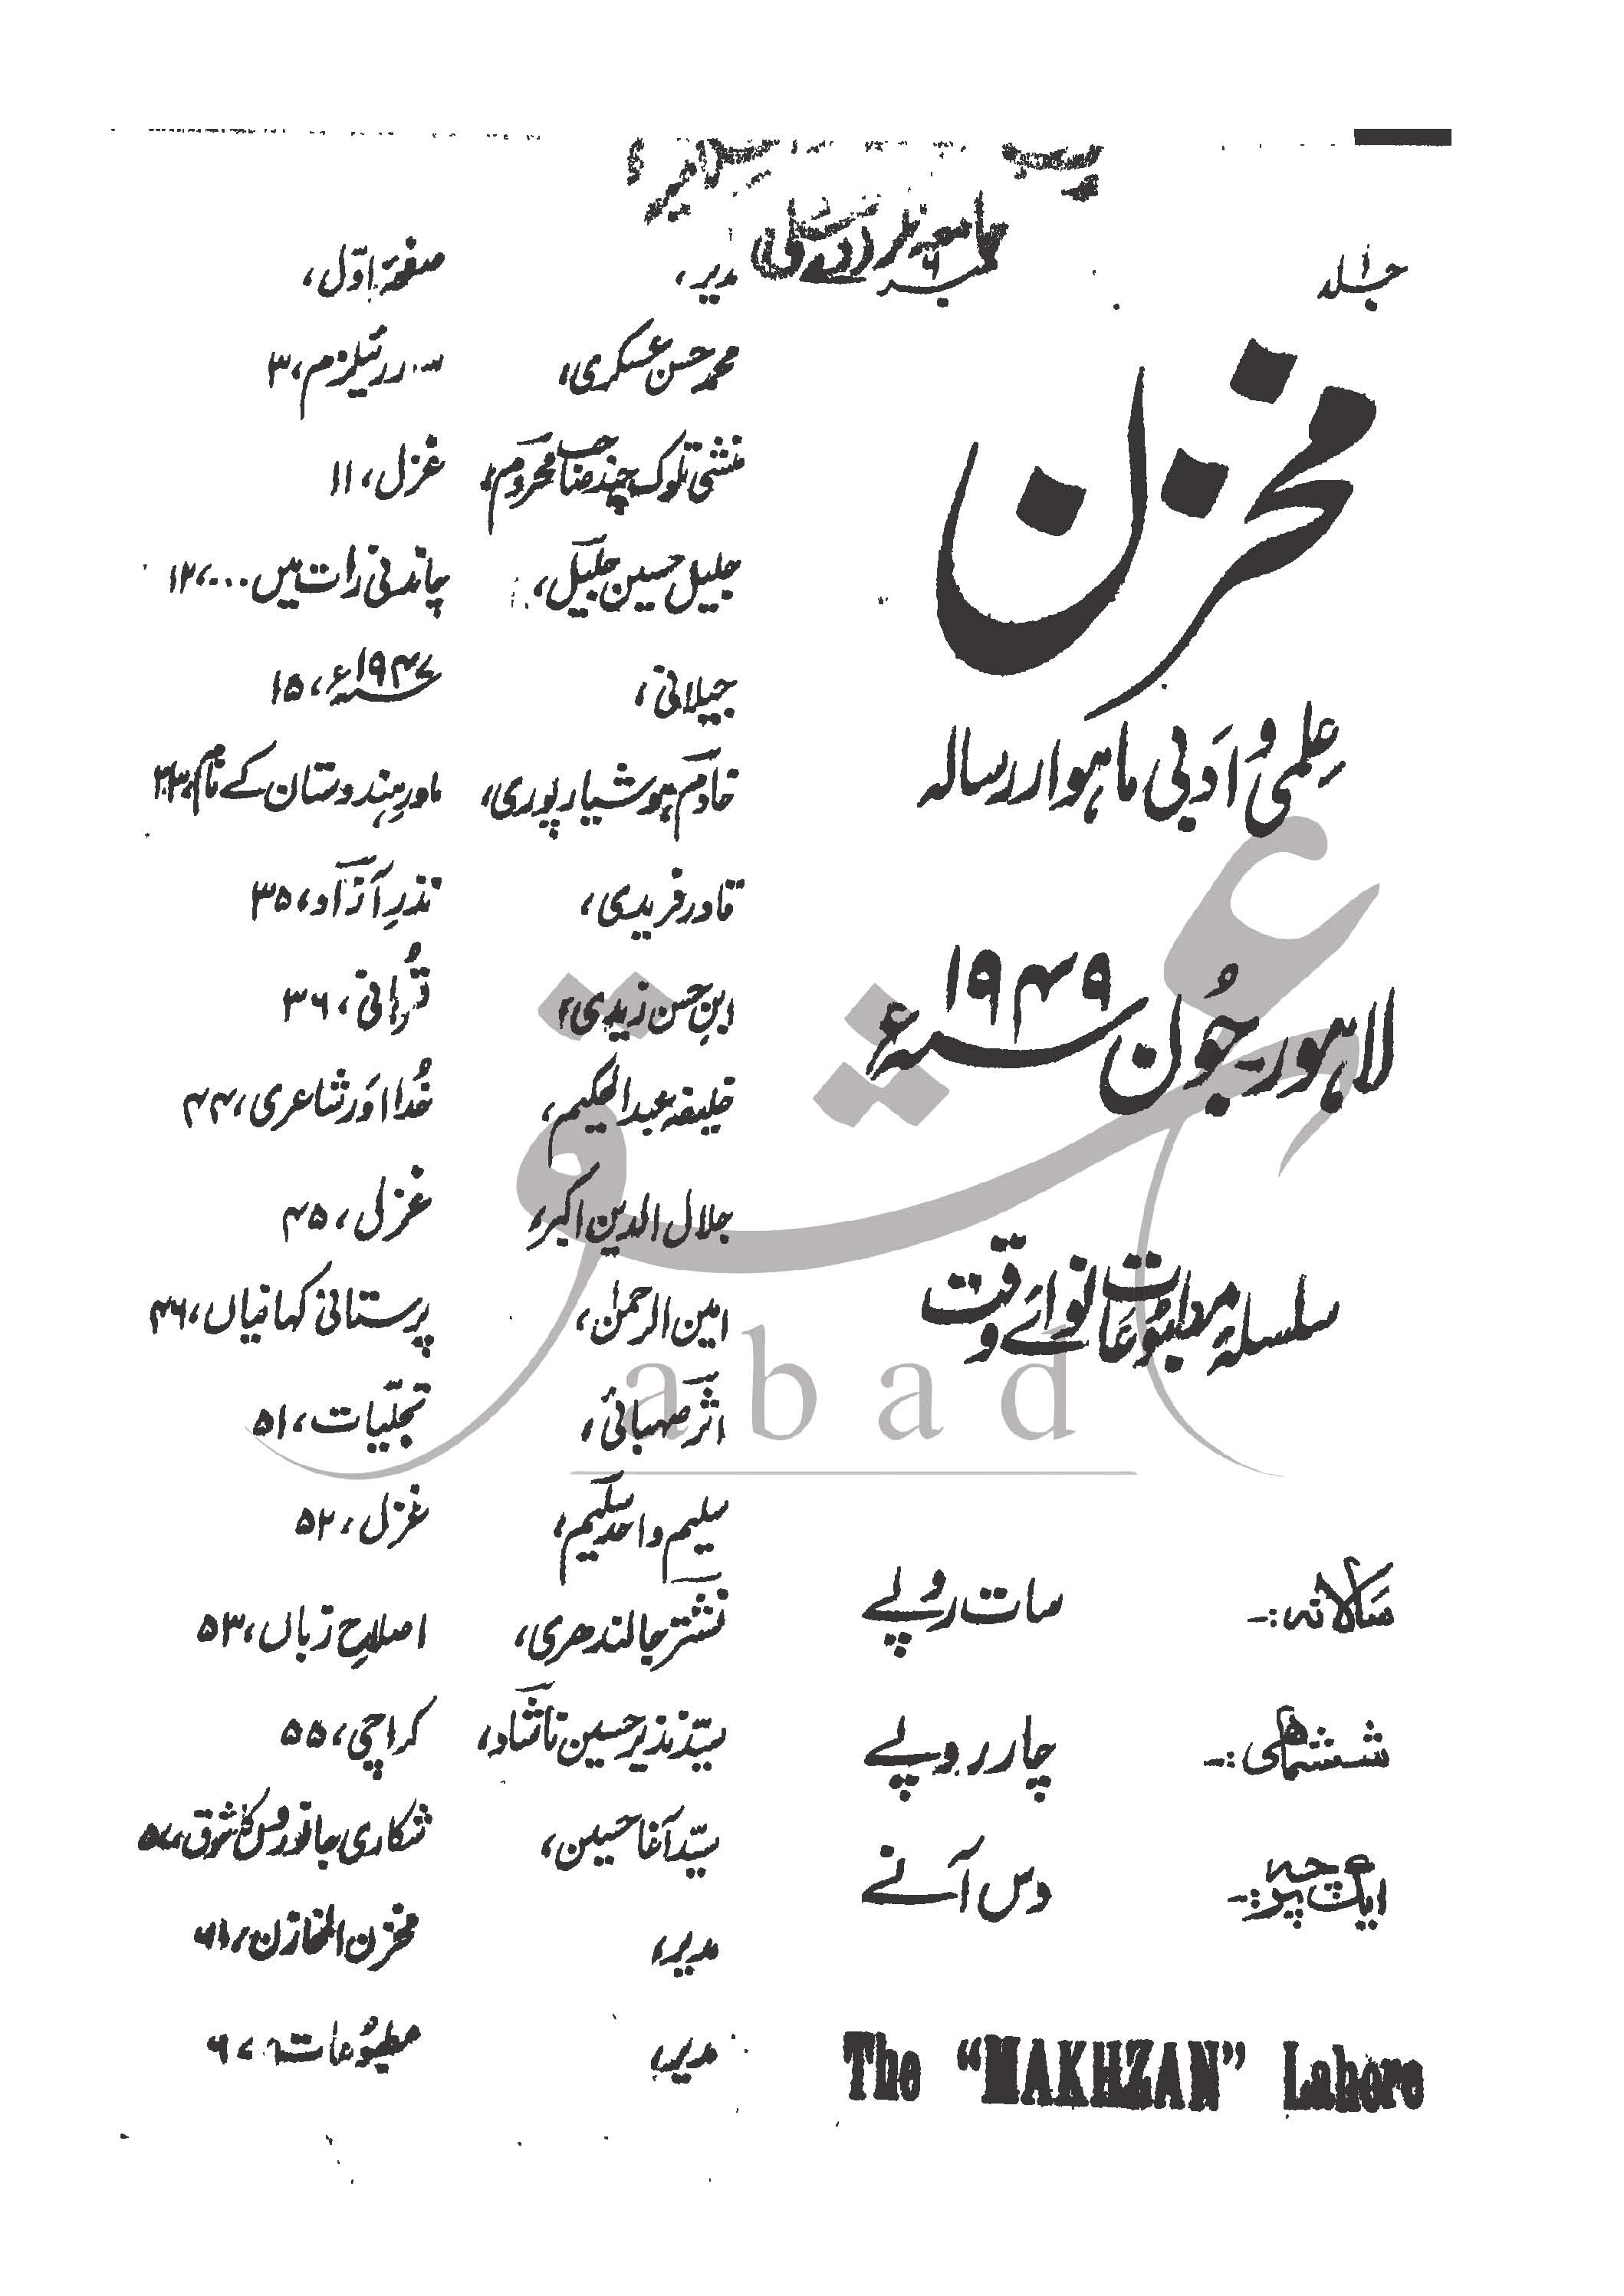 جلد ۱
جامعہ نگر نئی دہلی
مخزن
علمی و ادبی ماہوار رسالہ
لاہور۔ جُون ۱۹۴۹ سنہ ء
سلسلہ مطبوعات نوائے وقت
سالانہ :۔ سات روپے
ششماہی :۔ چار روپے
ایک پرچہ :۔ دس آنے
The “MAKHZAN” Lahore
مدیر، صفحۂ اوّل،
محمد حسن عسکری، ... رئیلزم، ۳
منشی تلوک چند صاحب محروم، غزل، ۱۱
جلیل حسین جلیل، چاندنی رات میں...، ۱۲
جیلانی، ۱۹۴۷ سنہ ء، ۱۵
خادم ہوشیارپوری، مادرِ ہندوستان کے نام،
قادر فریدی، نذرِ آزاد، ۳۵
ابنِ حسن زیدی، ۳۶
خلیفہ عبدالحکیم، خُدا اور شاعری، ۴۴
جلال الدین اکبر، غزل، ۴۵
امین الرحمٰن، پرستانی کہانیاں، ۴۶
اثر صہبائی، تجلّیات، ۵۱
سلیم واحد سلیم، غزل، ۵۲
نشتر جالندھری، اصلاحِ زباں، ۵۳
سیّد نذیر حسین ناشاد، کراچی، ۵۵
سیّد آغا حسین، شکاری جانوروں کا شوق، ۵۷
مدیر، مخزن المخازن، ۶۱
مدیر، مطبُوعات،
عشق
abad